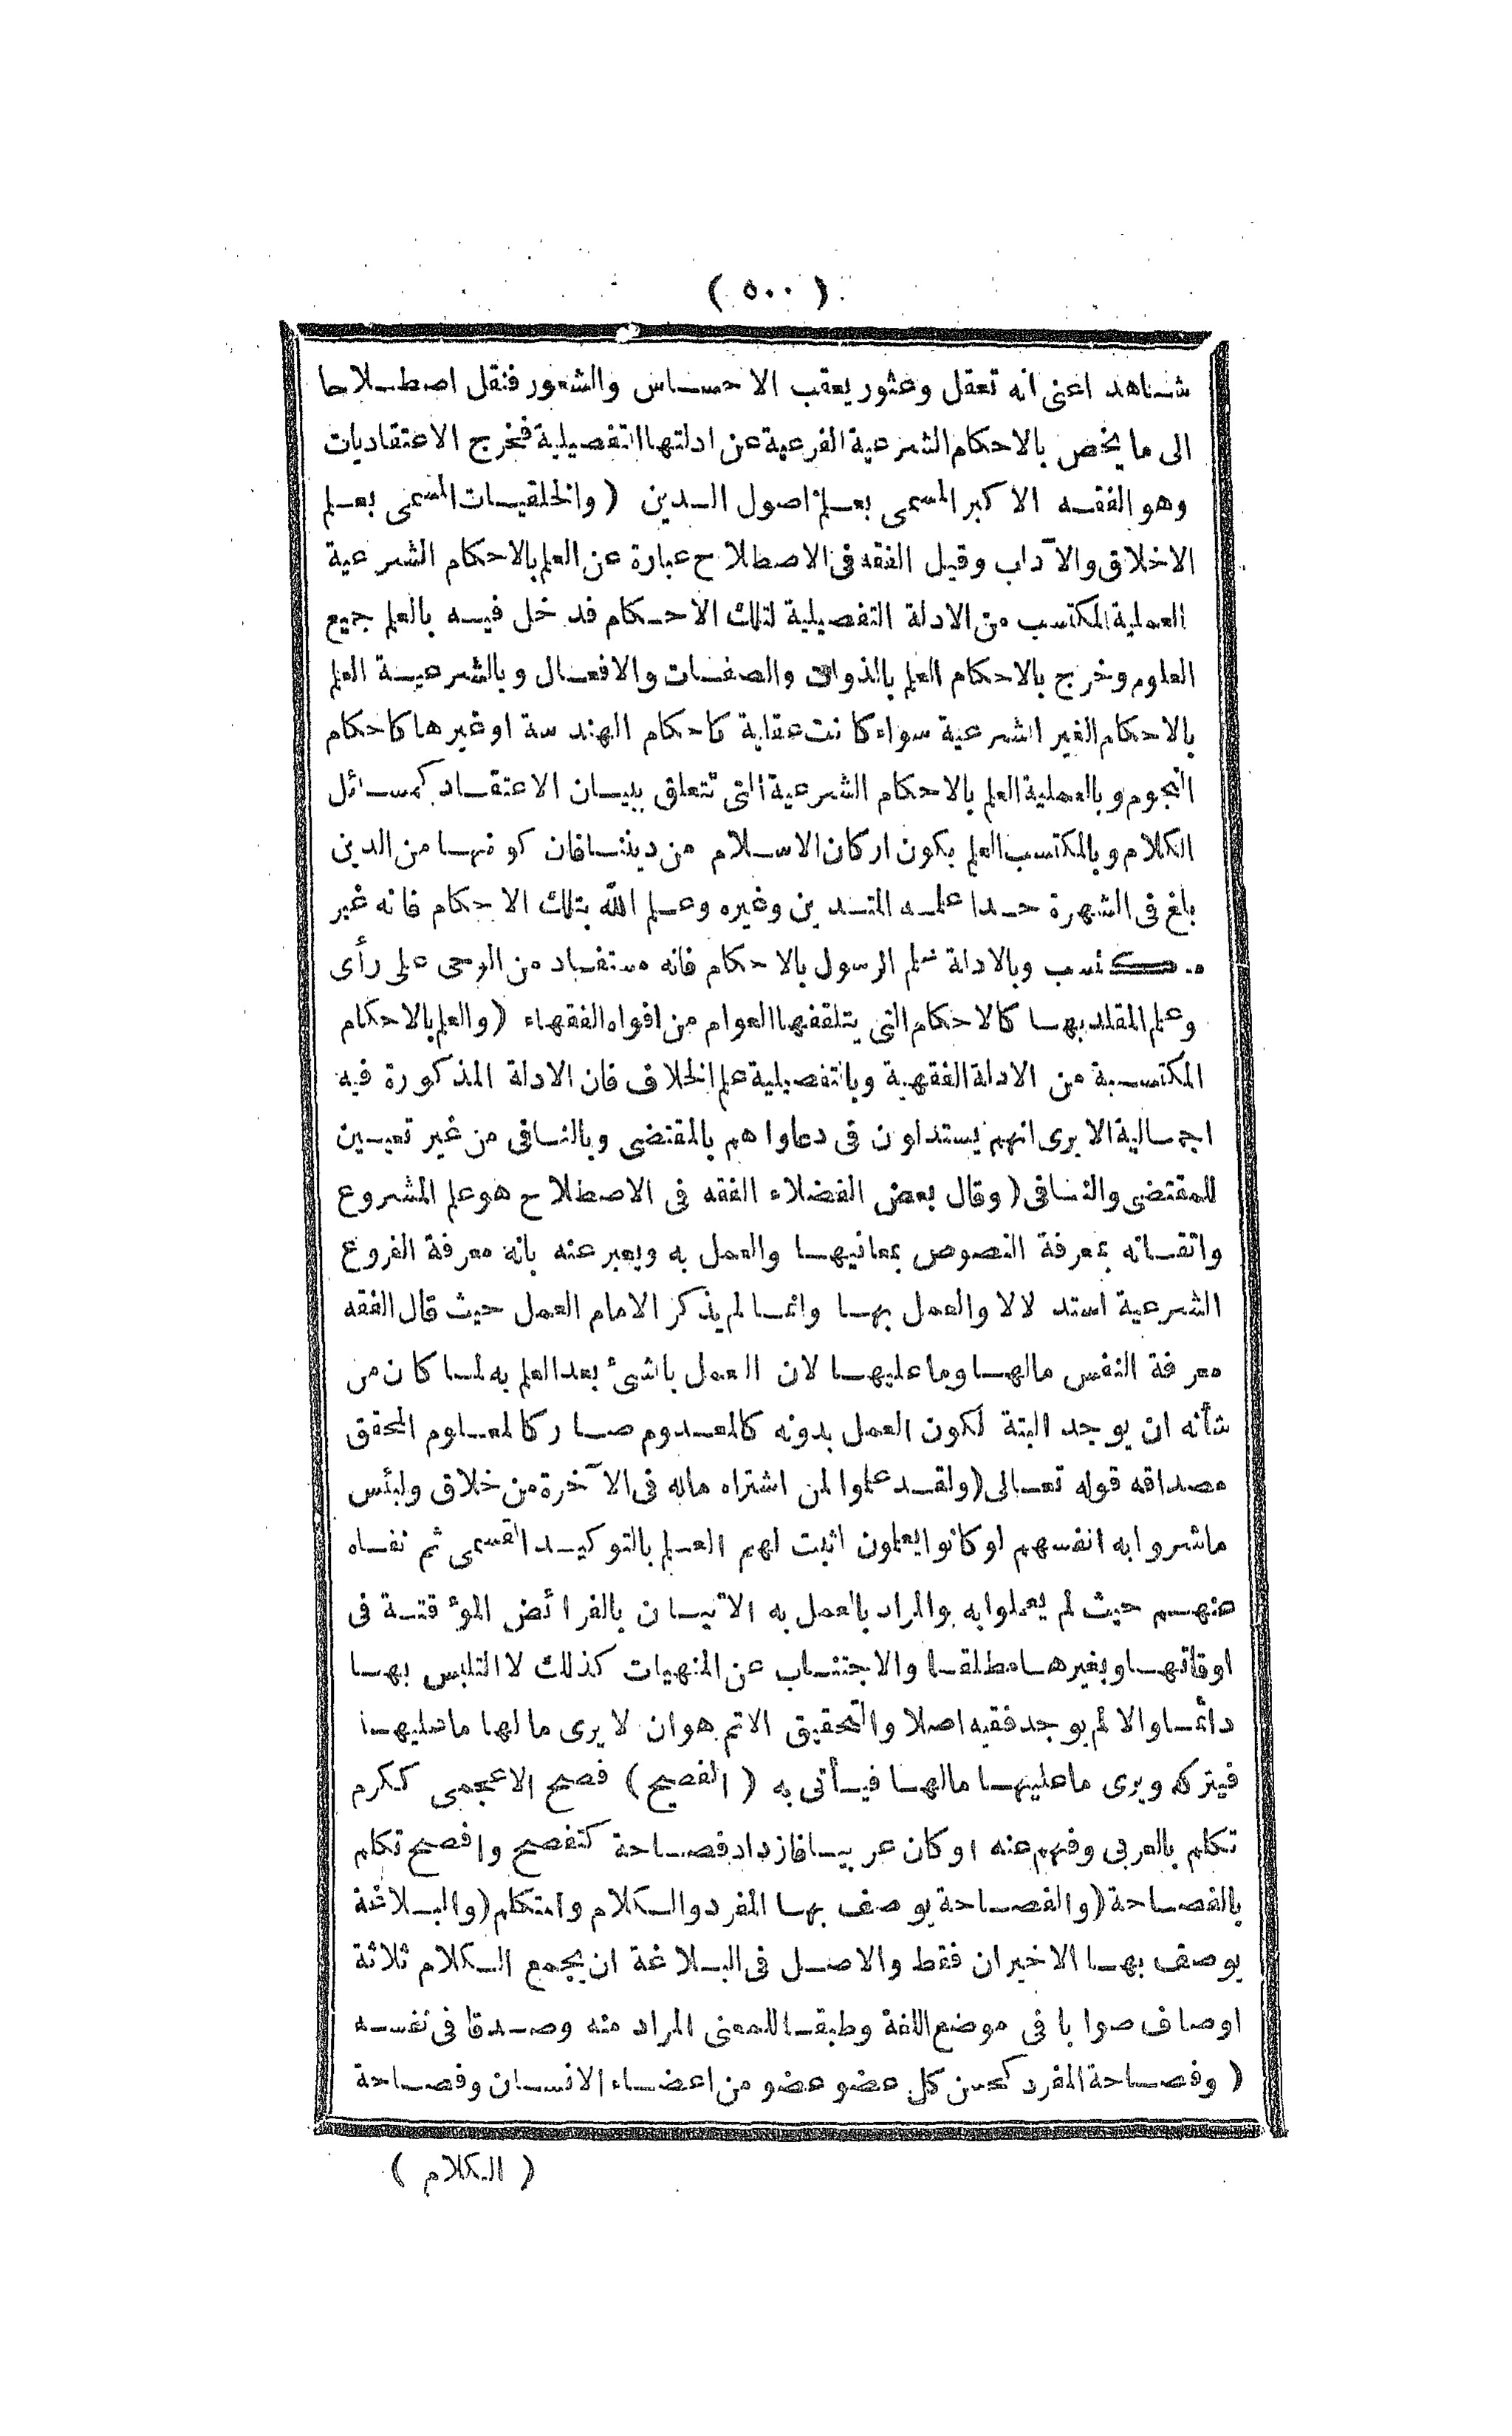 ( ٥٠٠ )
شاهد اعنى انه تعقل وعثور يعقب الاحساس والشعور فنقل اصطلاحا
الى ما يخص بالاحكام الشرعية الفرعية عن ادلتها التفصيلية فخرج الاعتقاديات
وهو الفقه الاكبر المسمى بعلم اصول الدين ( والخلقيات المسمى بعلم
الاخلاق والآداب وقيل الفقه فى الاصطلاح عبارة عن العلم بالاحكام الشرعية
العملية المكتسب من الادلة التفصيلية لتلك الاحكام فدخل فيه بالعلم جميع
العلوم وخرج بالاحكام العلم بالذوات والصفات والافعال وبالشرعية العلم
بالاحكام الغير الشرعية سواء كانت عقلية كاحكام الهندسة او غيرها كاحكام
النجوم وبالعملية العلم بالاحكام الشرعية التى تتعلق ببيان الاعتقاد كمسائل
الكلام وبالمكتسب العلم بكون اركان الاسلام من ديننا فان كونها من الدين
بلغ فى الشهرة حدا علمه المتدين وغيره وعلم الله بتلك الاحكام فانه غير
مكتسب وبالادلة علم الرسول بالاحكام فانه مستفاد من الوحى على رأى
وعلم المقلد بها كالاحكام التى يتلقفها العوام من افواه الفقهاء ( والعلم بالاحكام
المكتسبة من الادلة الفقهية وبالتفصيلية علم الخلاف فان الادلة المذكورة فيه
اجمالية الا يرى انهم يستدلون فى دعاواهم بالمقتضى وبالنافى من غير تعيين
للمقتضى والنافى ( وقال بعض الفضلاء الفقه فى الاصطلاح هو علم المشروع
واتقانه بمعرفة النصوص بمعانيها والعمل به ويعبر عنه بانه معرفة الفروع
الشرعية استدلالا والعمل بها وانما لم يذكر الامام العمل حيث قال الفقه
معرفة النفس مالها وما عليها لان العمل بالشئ بعد العلم به لما كان من
شأنه ان يوجد البتة لكون العمل بدونه كالمعدوم صار كالمعلوم المحقق
مصداقه قوله تعالى ( ولقد علموا لمن اشتراه ماله فى الآخرة من خلاق ولبئس
ماشروا به انفسهم لو كانوا يعلمون اثبت لهم العلم بالتوكيد القسمى ثم نفاه
عنهم حيث لم يعملوا به والمراد بالعمل به الاتيان بالفرائض الموقتة فى
اوقاتها وبغيرها مطلقا والاجتناب عن المنهيات كذلك لا التلبس بها
دائما والا لم يوجد فقيه اصلا والتحقيق الاتم هو ان لا يرى مالها ما عليها
فيتركه ويرى ما عليها مالها فيأتى به ( الفصيح ) فصح الاعجمى ككرم
تكلم بالعربى وفهم عنه او كان عربيا فازداد فصاحة كتفصح وافصح تكلم
بالفصاحة ( والفصاحة يوصف بها المفرد والكلام والمتكلم ( والبلاغة
يوصف بها الاخيران فقط والاصل فى البلاغة ان يجمع الكلام ثلاثة
اوصاف صوابا فى موضع اللغة وطبقا للمعنى المراد منه وصدقا فى نفسه
( وفصاحة المفرد كحسن كل عضو عضو من اعضاء الانسان وفصاحة
( الكلام )